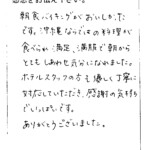 朝食バイキングがおいしかった
です。沖縄ならではの料理が
食べられ満足、満腹で朝から
とてもしあわせ気分になれました。
ホテルスタッフの方も優しく丁寧に
対応していただき、感謝の気持ち
でいっぱいです。
ありがとうございました。